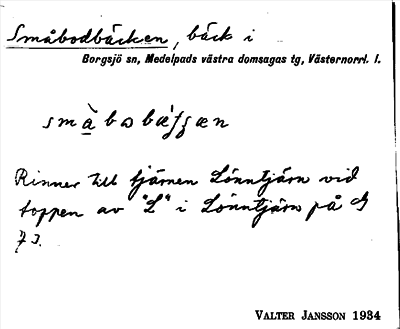 Småbodbäcken, bäck i
Borgsjö sn, Medelpads västra domsagas tg, Västernorrl. l.
Rinner till tjärnen Lönntjärn vid
toppen av "L" i Lönntjärn på
VALTER JANSSON 1934